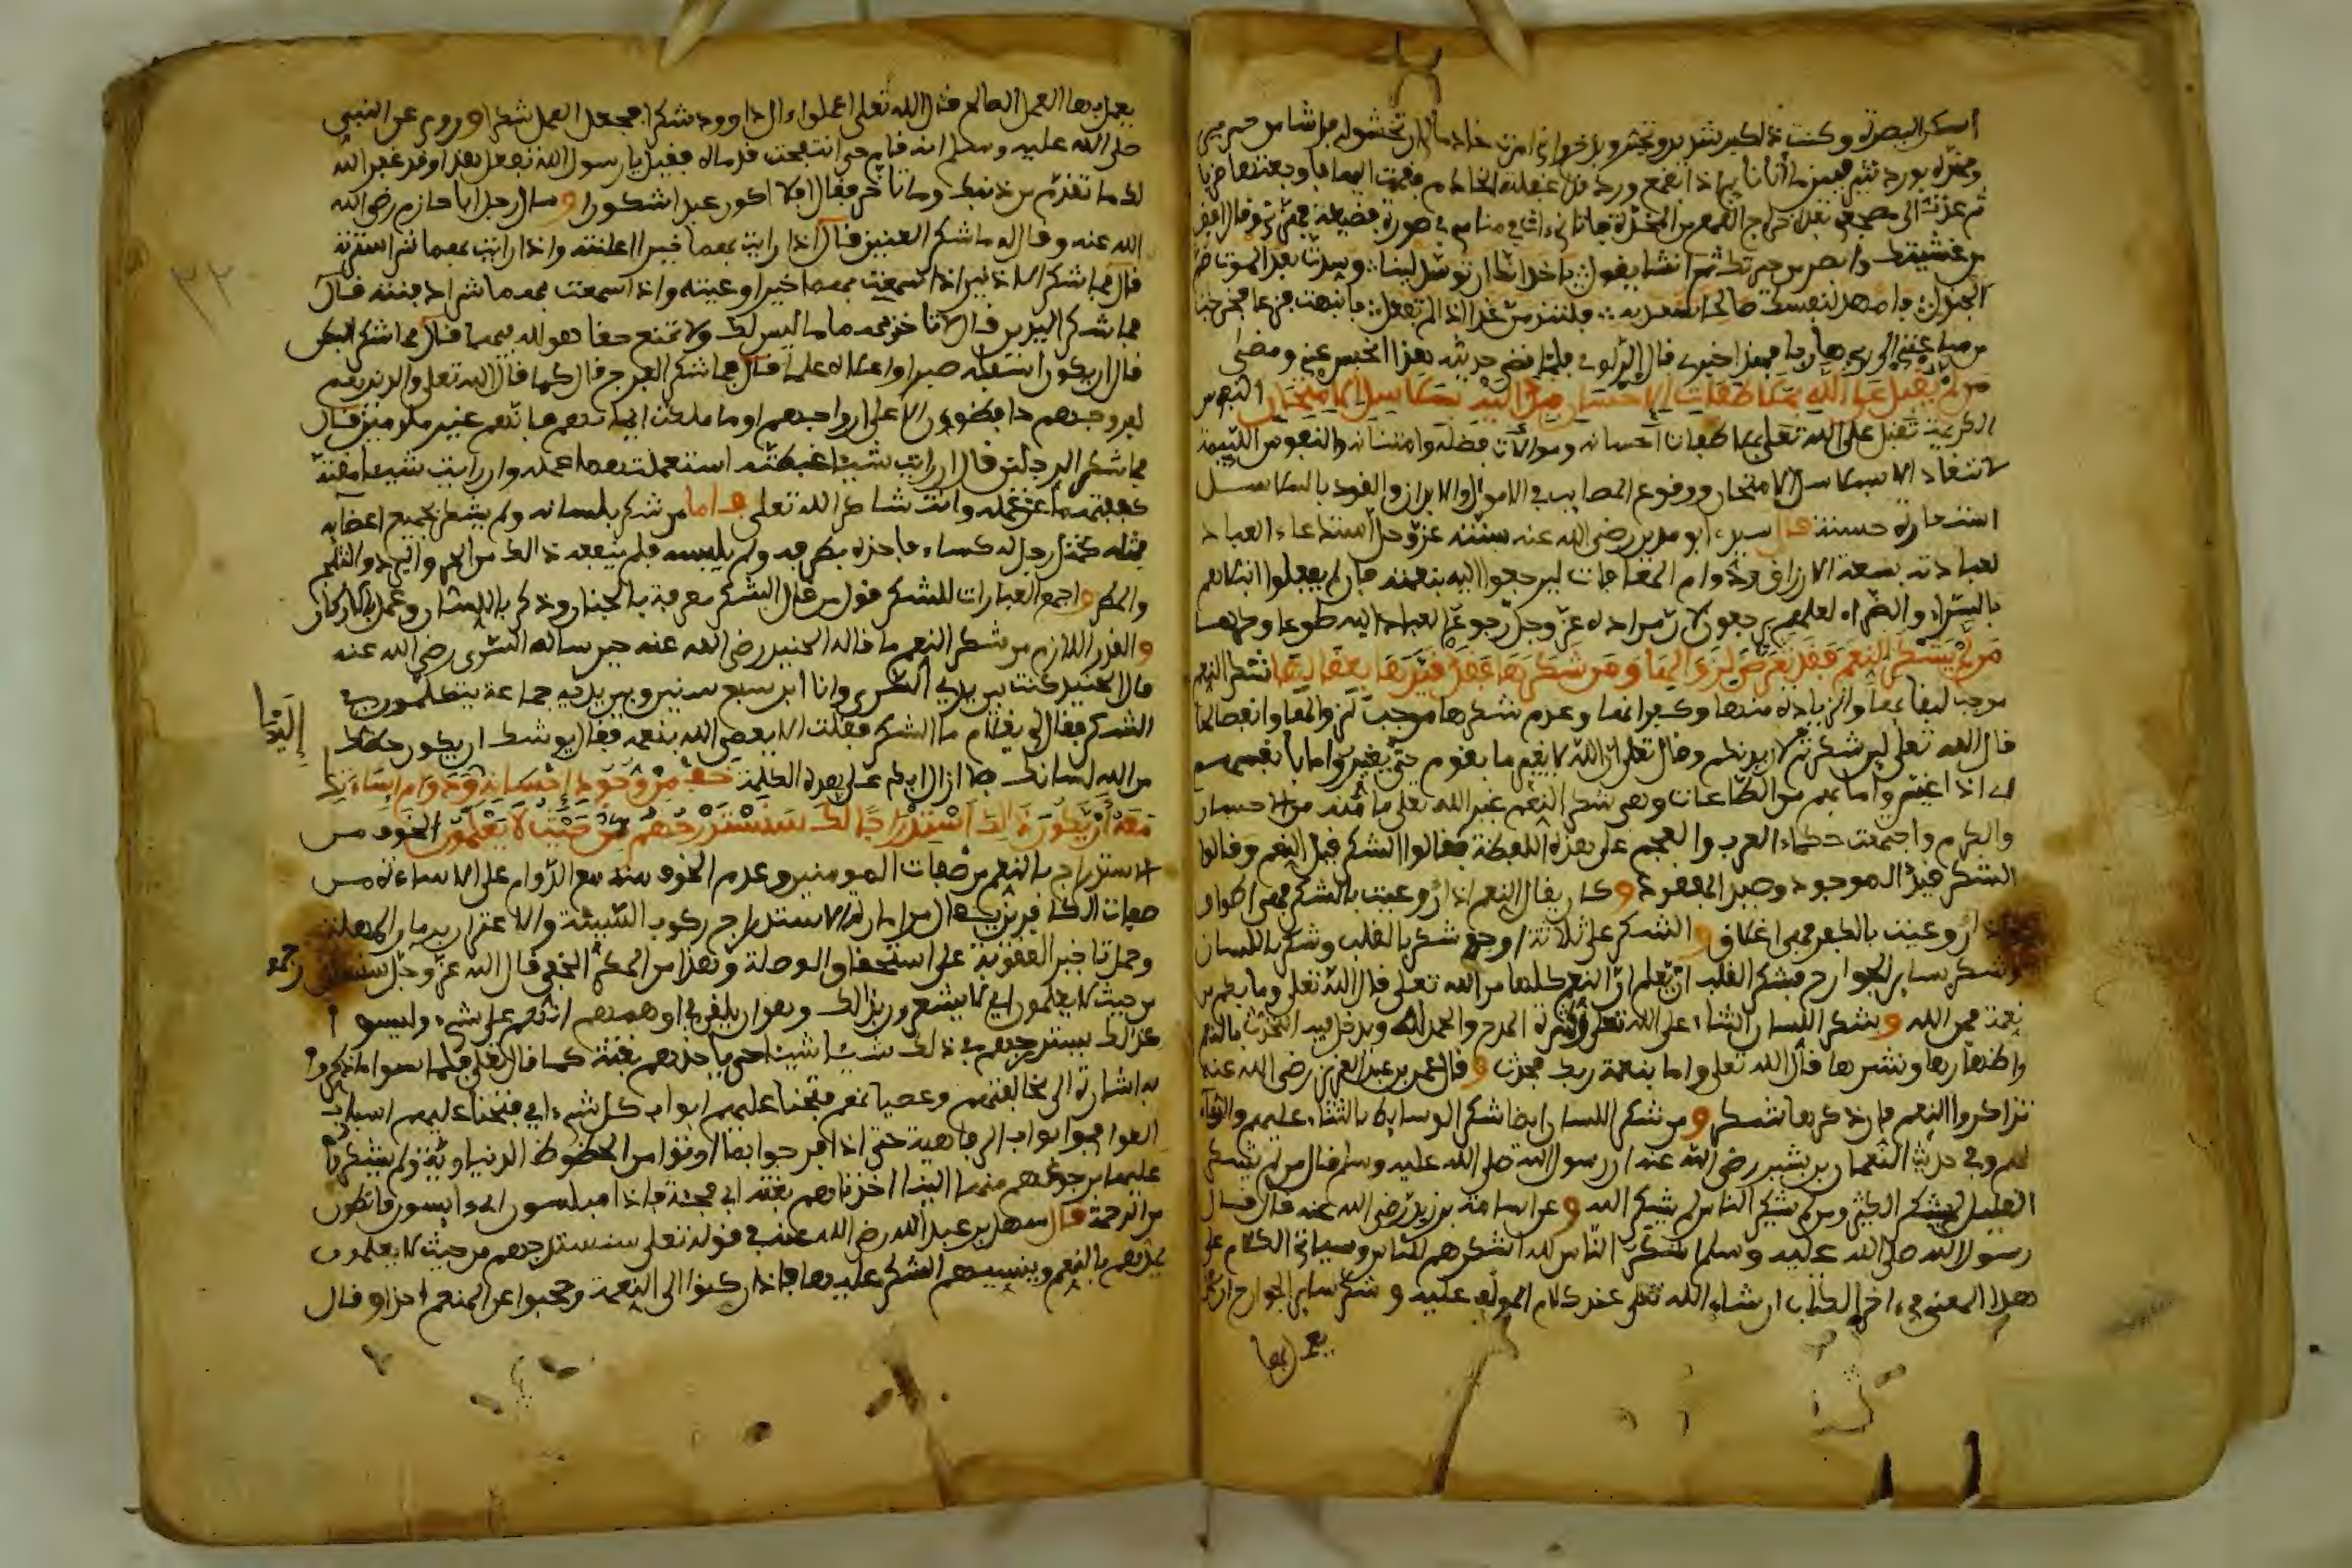 اسكن البصرة وكنت
ثم عدت الى مضجعي
من عشيتك وابصر من حيرتك ثم انشا يقول يا خد انك ان توسد لينا وسدت بعد الموت صم
الجندل فامهد لنفسك صالحا تسعد به فلتندمن غدا اذا لم تفعل فانتبهت فزعا فخرجت
من ساعتي الى ربي هاربا
من لم يقبل على الله بملاطفات الاحسان قيد اليه بسلاسل الامتحان النفوس
الكريمة تقبل على الله تعلى بملاطفات احسانه وموالات فضله وامتنانه والنفوس اللئيمة
لا تنقاد الا بسلاسل الامتحان ووقوع المصايب في الاموال والابدان والقود بالسلاسل
استعارة حسنة قال سيدي ابو مدين رضي الله عنه سنته عز وجل استدعاء العباد
لعبادته بسعة الارزاق ودوام المعافات ليرجعوا اليه بنعمته فان لم يفعلوا ابتلاهم
بالسراء والضراء لعلهم يرجعون لان مراده عز وجل رجوع العباد اليه طوعا وكرها
من لم يشكر النعم فقد تعرض لزوالها ومن شكرها فقد قيدها بعقالها شكر النعم
موجب لبقايها والزيادة منها وكفرانها وعدم شكرها موجب لزوالها وانفصالها
قال الله تعلى لين شكرتم لازيدنكم وقال تعلى ان الله لا يغير ما بقوم حتى يغيروا ما بانفسهم
اي اذا غيروا ما بهم من الطاعات وهي شكر النعم غير الله تعلى ما منه من الاحسان
والكرم واجتمعت حكماء العرب والعجم على هذه اللفظة فقالوا الشكر قيد النعم وقالوا
الشكر قيد الموجود وصيد المفقود وكان يقال النعم اذا روعيت بالشكر فهي اطواق
واذا روعيت بالكفر فهي اغلاق والشكر على ثلاثة اوجه شكر بالقلب وشكر باللسان
وشكر بساير الجوارح فشكر القلب ان يعلم ان النعم كلها من الله تعلى قال الله تعلى وما بكم من
نعمة فمن الله وشكر اللسان الثناء على الله تعلى وكثرة المدح والحمد لله ويدخل فيه التحدث بالنعم
واظهارها ونشرها قال الله تعلى واما بنعمة ربك فحدث وقال عمر بن عبد العزيز رضي الله عنه
تذاكروا النعم فان ذكرها شكر ومن شكر اللسان ايضا شكر الوسايط بالثناء عليهم والدعاء
لهم وفي حديث النعمان بن بشير رضي الله عنه ان رسول الله صلى الله عليه وسلم قال من لم يشكر
القليل لم يشكر الكثير ومن لم يشكر الناس لم يشكر الله وعن اسامة بن زيد رضي الله عنه قال قال
رسول الله صلى الله عليه وسلم اشكر الناس لله اشكرهم للناس وسياتي الكلام على
هذا المعنى في اخر الكتاب ان شاء الله تعلى عند كلام المولف عليه وشكر ساير الجوارح ان
يعمل بها
يعمل بها العمل الصالح قال الله تعلى اعملوا ءال داوود شكرا فجعل العمل شكرا وروي عن النبي
صلى الله عليه وسلم انه قام حتى انتفخت قدماه فقيل يا رسول الله تفعل هذا وقد غفر الله
لك ما تقدم من ذنبك وما تاخر فقال افلا اكون عبدا شكورا وسال رجل ابا حازم رضي الله
الله عنه وقال له ما شكر العينين قال اذا رايت بهما خيرا اعلنته واذا رايت بهما شرا سترته
قال فما شكر الاذنين اذا سمعت بهما خيرا وعيته واذا سمعت بهما شرا دفنته قال
فما شكر اليدين قال لا تاخذ بهما ما ليس لك ولا تمنع حقا هو لله فيهما قال فما شكر البطن
قال ان يكون اسفله صبرا واعلاه علما قال فما شكر الفرج قال كما قال الله تعلى والذين هم
لفروجهم حافظون الا على ازواجهم او ما ملكت ايمانهم فانهم غير ملومين قال
فما شكر الرجلين قال ان رايت شيئا غبطته استعملتهما عمله وان رايت شيئا مقته
كففتهما عن عمله وانت شاكر الله تعلى فاما من شكر بلسانه ولم يشكر بجميع اعضايه
فمثله كمثل رجل له كساء فاخذه بطرفه ولم يلبسه فلم ينفعه ذالك من الحر والبرد والثلج
والمطر واجمع العبارات للشكر قول من قال الشكر معرفة بالجنان وذكر باللسان وعمل بالاركان
والقدر اللازم من شكر النعم ما قاله الجنيد رضي الله عنه حين ساله السري رضي الله عنه
قال الجنيد كنت بين يدي السري وانا ابن سبع سنين وبين يديه جماعة يتكلمون في
الشكر فقال لي يا غلام ما الشكر فقلت الا يعصى الله بنعمه فقال يوشك ان يكون حظك
من الله لسانك فلا ازال ابكي على هذه الكلمة خف من وجود احسانه ودوام اساءتك
معه ان يكون ذالك استدراجا لك سنستدرجهم من حيث لا يعلمون الخوف من
الاستدراج بالنعم من صفات المومنين وعدم الخوف منه مع الدوام على الاساءة من
صفات الكافرين يقال من امارات الاستدراج ركوب السيئة والاغترار بزمان المهلة
وحمل تاخير العقوبة على استحقاق الوصلة وهذا من المكر الخفي قال الله عز وجل سنستدرجهم
من حيث لا يعلمون اي لا يشعرون بذالك وهو ان يلقي في اوهامهم انهم على شيء وليسوا
كذالك يستدرجهم في ذالك شيئا شيئا حتى ياخذهم بغتة كما قال تعلى فلما نسوا ما ذكروا
به اشارة الى مخالفتهم وعصيانهم فتحنا عليهم ابواب كل شيء اي فتحنا عليهم اسباب
العوافي وابواب الرفاهية حتى اذا فرحوا بما اوتوا من الحظوظ الدنياوية ولم يشكروا
عليها برجوعهم منها الينا اخذناهم بغتة اي فجئة فاذا هم مبلسون اي ءايسون قانطون
من الرحمة قال سهل بن عبد الله رضي الله عنه في قوله تعلى سنستدرجهم من حيث لا يعلمون
نمدهم بالنعم وننسيهم الشكر عليها فاذا ركنوا الى النعمة وحجبوا عن المنعم اخذوا وقال